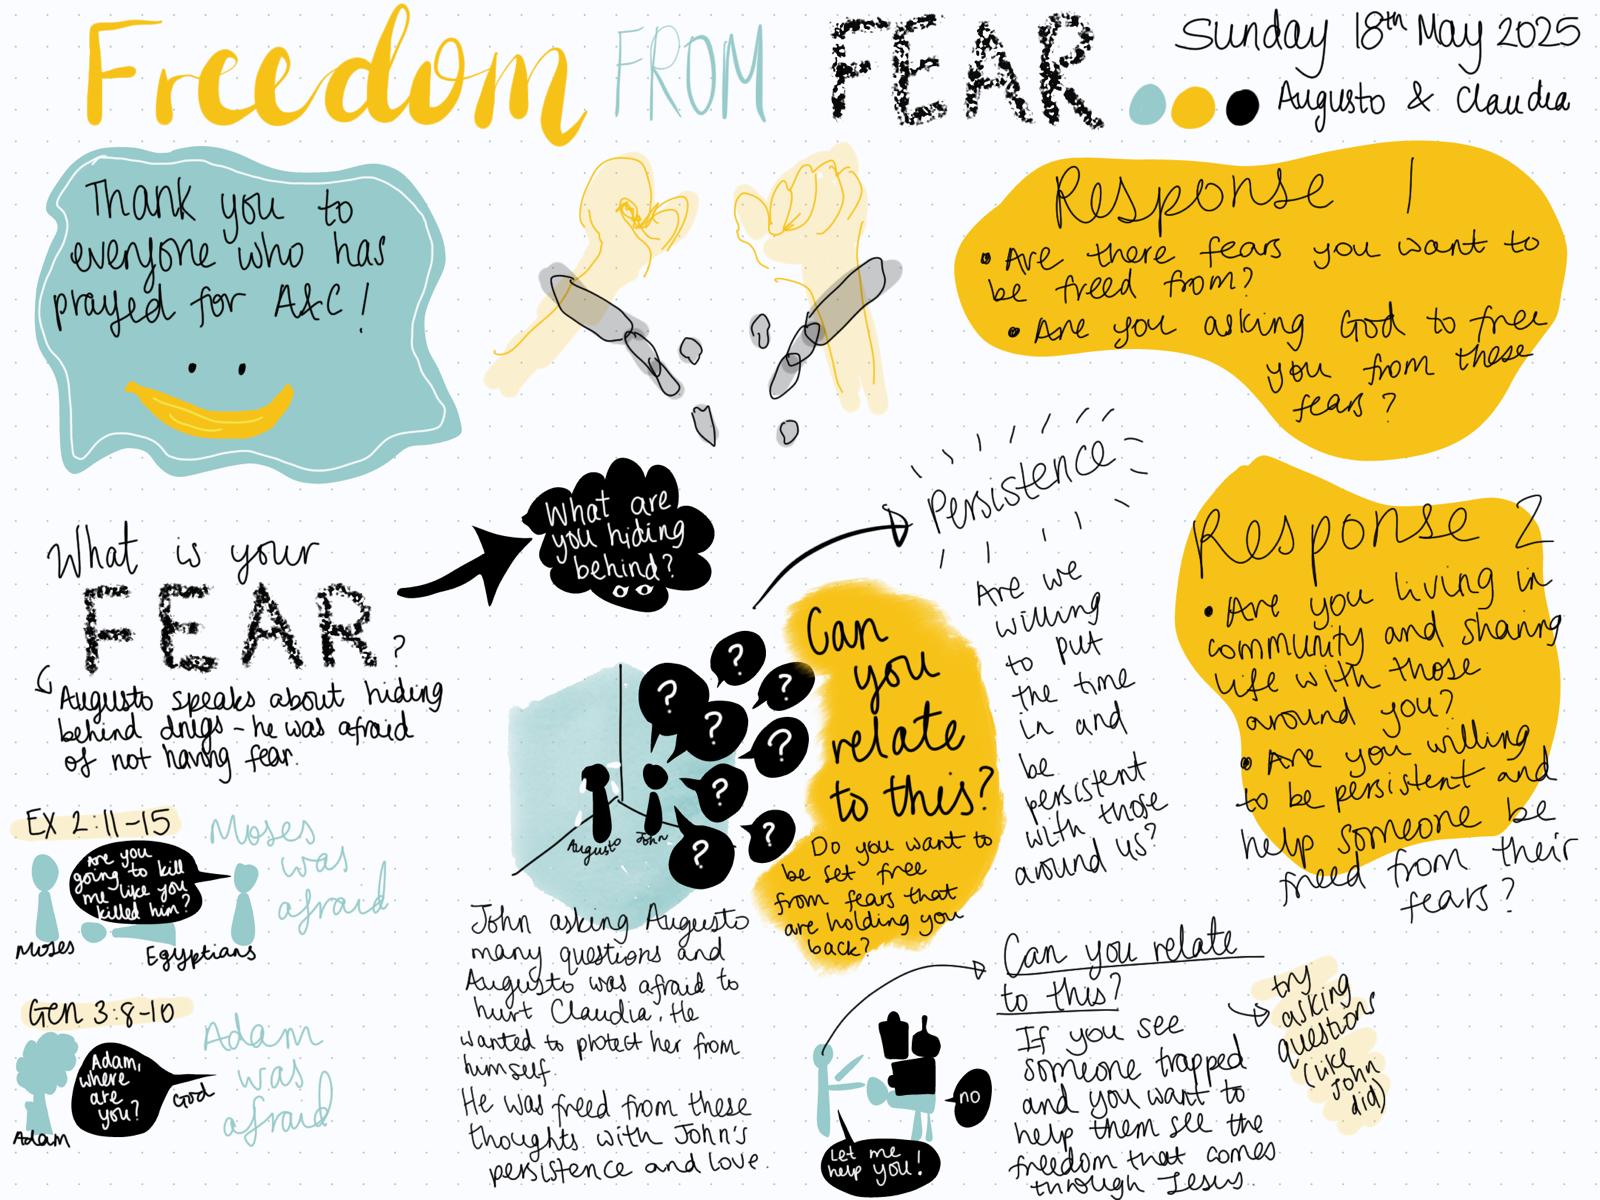 Freedom FROM FEAR
Sunday 18th May 2025
Augusto & Claudia
Thank you to
everyone who has
prayed for A&C!
Response 1
• Are there fears you want to
be freed from?
• Are you asking God to free
you from these
fears?
What is your
FEAR?
Augusto speaks about hiding
behind drugs - he was afraid
of not having fear.
What are
you hiding
behind?
Ex 2:11-15
Are you
going to kill
me like you
killed him?
Moses
Egyptians
Moses
was
afraid
Gen 3:8-10
Adam,
where
are
you?
God
Adam
Adam
was
afraid
?
?
?
?
?
?
?
?
Augusto
John
John asking Augusto
many questions and
Augusto was afraid to
hurt Claudia. He
wanted to protect her from
himself.
He was freed from these
thoughts with John's
persistence and love.
Can
you
relate
to this?
Do you want to
be set free
from fears that
are holding you
back?
Persistence
Are we
willing
to put
the time
in and
be
persistent
with those
around us?
Response 2
• Are you living in
community and sharing
life with those
around you?
• Are you willing
to be persistent and
help someone be
freed from their
fears?
Let me
help you!
no
Can you relate
to this?
If you see
someone trapped
and you want to
help them see the
freedom that comes
through Jesus
try
asking
questions
(like
John
did)